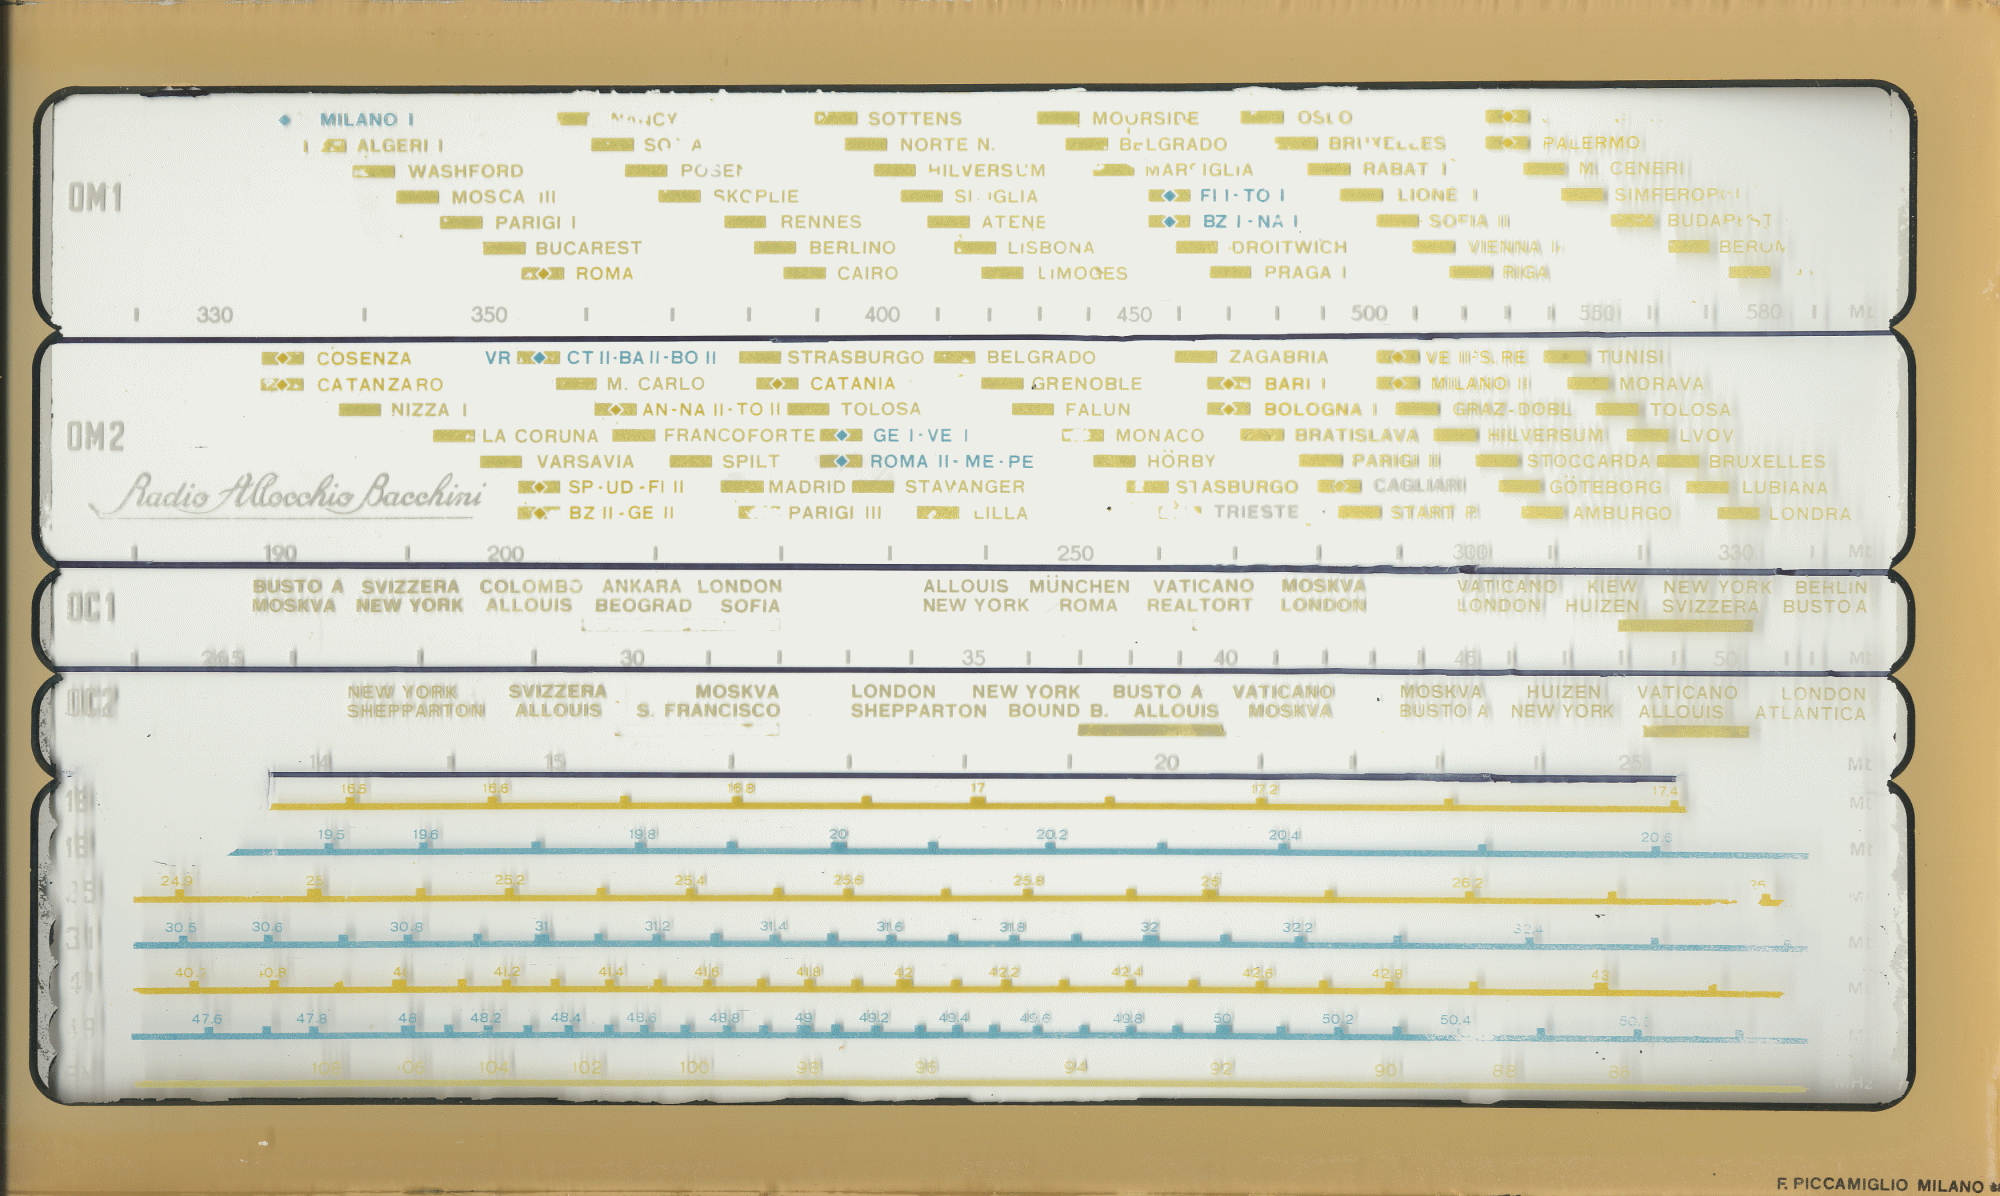 MILANO I NANCY SOTTENS MOURSIDE OSLO
ALGERI I SOFIA NORTE N. BELGRADO BRUXELLES PALERMO
WASHFORD POSEN HILVERSUM MARSIGLIA RABAT I M. CENERI
OM1 MOSCA III SKOPLIE SIVIGLIA FI I-TO I LIONE I SIMFEROPOL
PARIGI I RENNES ATENE BZ I-NA I SOFIA II BUDAPEST
BUCAREST BERLINO LISBONA DROITWICH VIENNA II
ROMA CAIRO LIMOGES PRAGA I RIGA
330 350 400 450 500 550 580 Mt
COSENZA VR CT II-BA II-BO II STRASBURGO BELGRADO ZAGABRIA VE II-S.RE TUNISI
CATANZARO M. CARLO CATANIA GRENOBLE BARI I MILANO II MORAVA
NIZZA I AN-NA II-TO II TOLOSA FALUN BOLOGNA I GRAZ-DOBL TOLOSA
OM2 LA CORUNA FRANCOFORTE GE I-VE I MONACO BRATISLAVA HILVERSUM LVOV
VARSAVIA SPILT ROMA II-ME-PE HÖRBY PARIGI II STOCCARDA BRUXELLES
Radio Allocchio Bacchini SP-UD-FI II MADRID STAVANGER STASBURGO CAGLIARI GÖTEBORG LUBIANA
BZ II-GE II PARIGI III LILLA TRIESTE AMBURGO LONDRA
190 200 250 300 330 Mt
BUSTO A SVIZZERA COLOMBO ANKARA LONDON ALLOUIS MÜNCHEN VATICANO MOSKVA VATICANO KIEW NEW YORK BERLIN
OC1 MOSKVA NEW YORK ALLOUIS BEOGRAD SOFIA NEW YORK ROMA REALTORT LONDON LONDON HUIZEN SVIZZERA BUSTO A
26.5 30 35 40 45 50 Mt
NEW YORK SVIZZERA MOSKVA LONDON NEW YORK BUSTO A VATICANO MOSKVA HUIZEN VATICANO LONDON
OC2 SHEPPARTON ALLOUIS S. FRANCISCO SHEPPARTON BOUND B. ALLOUIS MOSKVA BUSTO A NEW YORK ALLOUIS ATLANTICA
14 15 20 25 Mt
16.5 16.6 16.8 17 17.2 17.4 Mt
19.5 19.6 19.8 20 20.2 20.4 20.6 Mt
25 24.9 25 25.2 25.4 25.6 25.8 26 26.2
31 30.5 30.6 30.8 31 31.2 31.4 31.6 31.8 32 32.2 32.4 Mt
41 40.8 41.2 41.4 41.6 41.8 42 42.2 42.4 42.6 42.8 43
49 47.6 47.8 48 48.2 48.4 48.6 48.8 49 49.2 49.4 49.6 49.8 50 50.2 50.4
108 106 104 102 100 98 96 94 92 90 88 86 MHz
F. PICCAMIGLIO MILANO